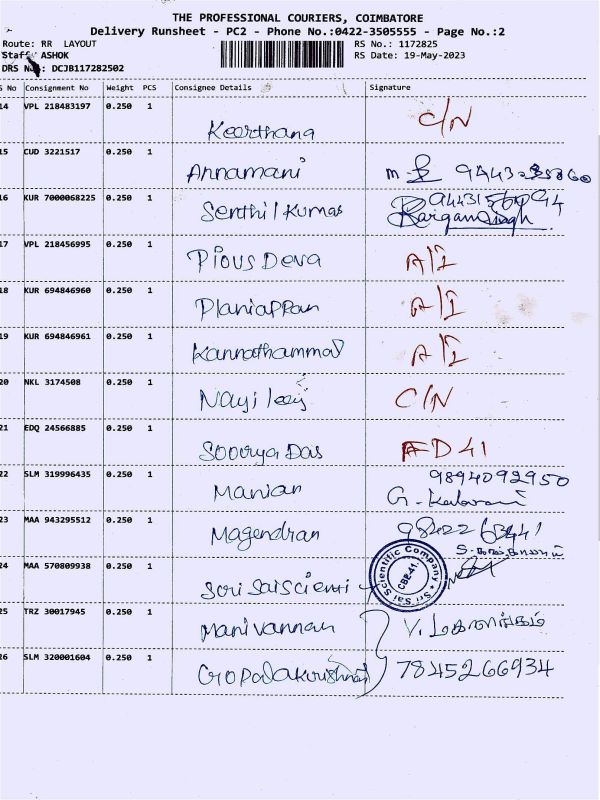 THE PROFESSIONAL COURIERS, COIMBATORE
Delivery Runsheet - PC2 - Phone No.:0422-3505555 - Page No.:2
Route: RR LAYOUT RS No.: 1172825
Staff: ASHOK RS Date: 19-May-2023
DRS No.: DCJB117282502
S No Consignment No Weight PCS Consignee Details Signature
14 VPL 218483197 0.250 1 Keerthana C/N
15 CUD 3221517 0.250 1 Annamani
16 KUR 7000068225 0.250 1 Senthil Kumar
17 VPL 218456995 0.250 1 Pious Deva A/I
18 KUR 694846960 0.250 1 Planiappan A/I
19 KUR 694846961 0.250 1 Kannathammal A/I
20 NKL 3174508 0.250 1 C/N
21 EDQ 24566885 0.250 1 Soorya Das FD 41
22 SLM 319996435 0.250 1 Manian 9894092950
23 MAA 943295512 0.250 1 Magendran
24 MAA 570809938 0.250 1 Sri Sai Scienti
Sri Sai Scientific Company
CBE-41.
25 TRZ 30017945 0.250 1 Manivannan
26 SLM 320001604 0.250 1 Gopalakrishnan 7845266934